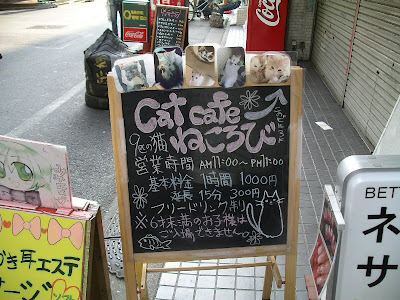 Cat cafe
9匹の猫 ねころび
営業時間 AM11:00～PM11:00
基本料金 1時間 1000円
延長 15分 300円
フリードリンク制
※6才未満のお子様は
ご入場できません。
Coca-Cola
Coca-Cola
き耳エステ
サージ
BET
ネ
サ